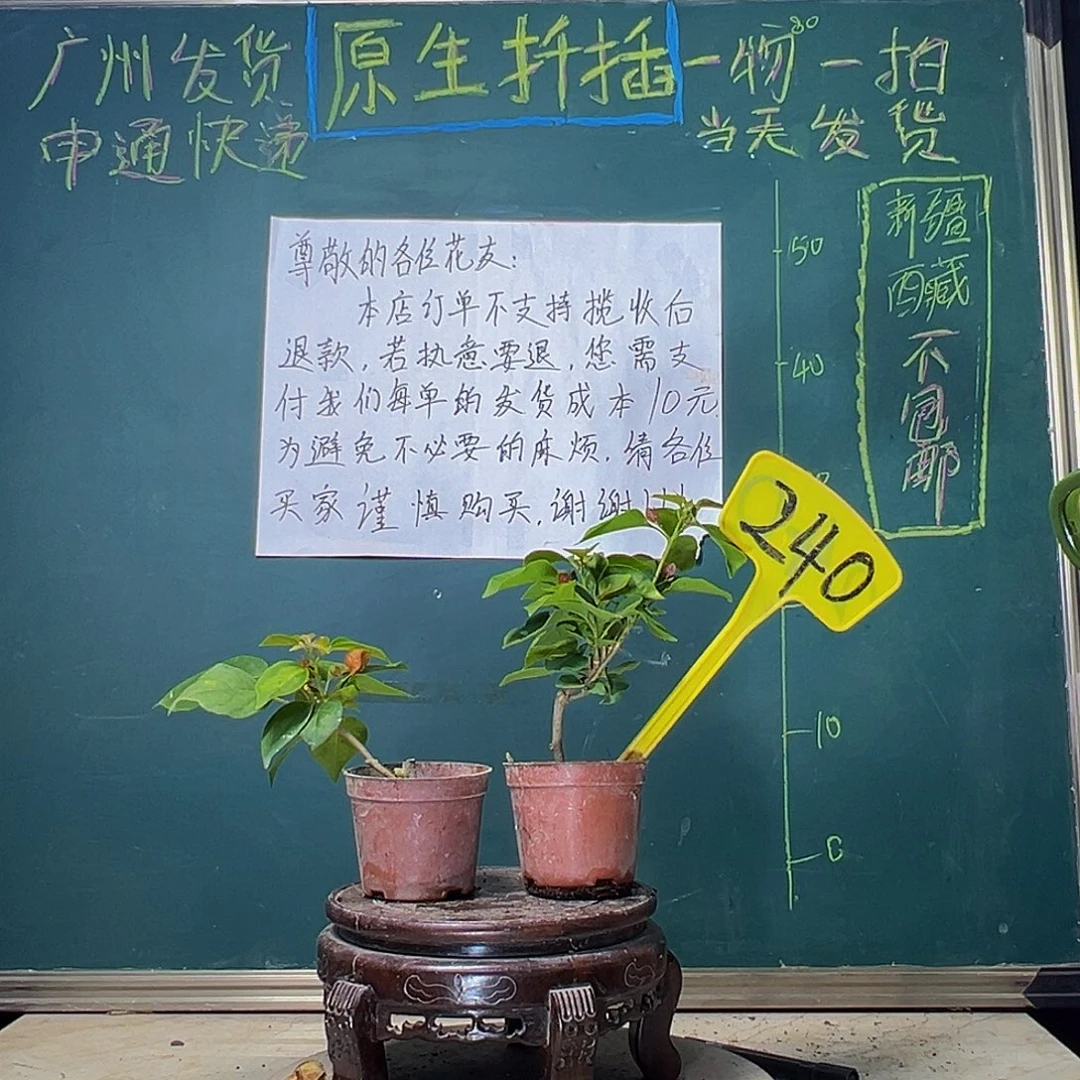 广州发货
申通快递
原生扦插
一物一拍
当天发货
尊敬的各位花友：
本店订单不支持揽收后
退款，若执意要退，您需支
付我们每单的发货成本10元.
为避免不必要的麻烦，请各位
买家谨慎购买，谢谢！！！
50
40
10
0
新疆
西藏
不
包
邮
240